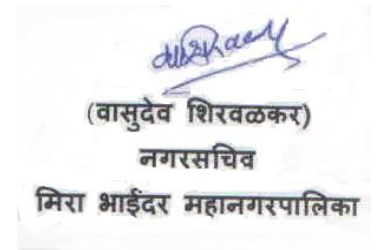 (वासुदेव शिरवळकर)
नगरसचिव
मिरा भाईंदर महानगरपालिका